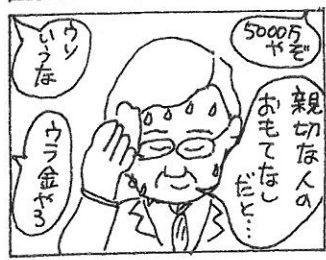 5000万
やぞ
親切な人の
おもてなし
だと…
ウソ
いうな
ウラ金やろ